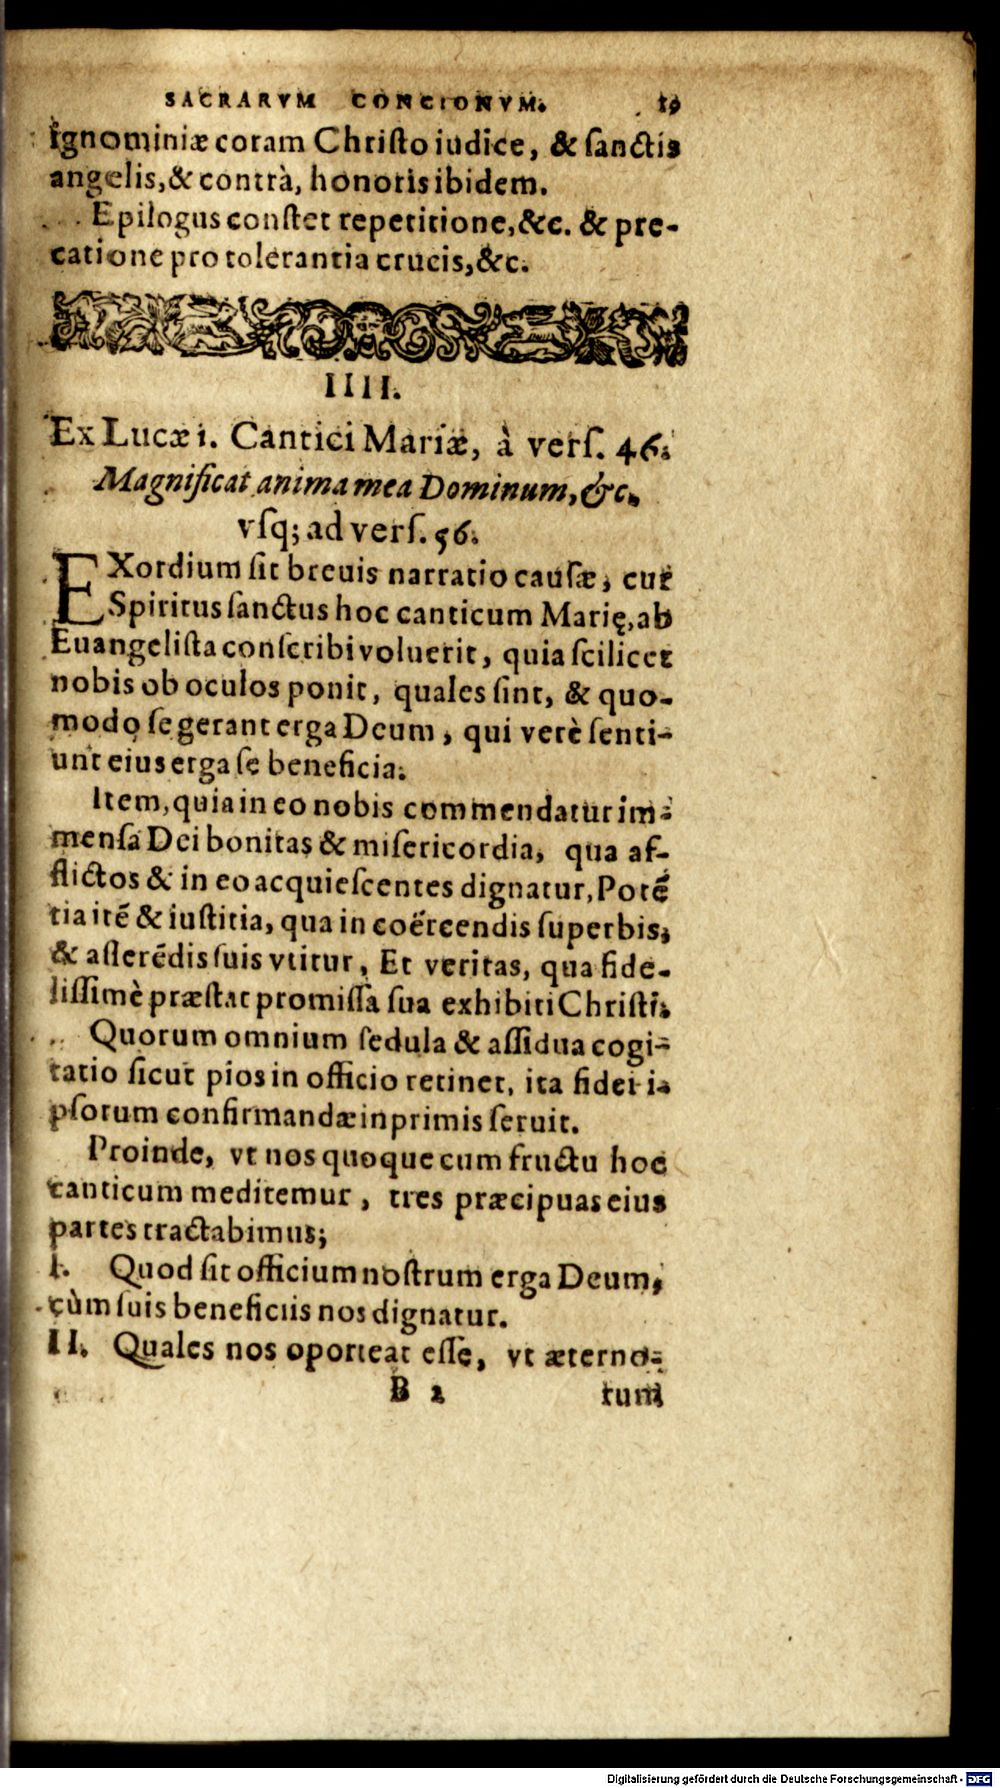 SACRARVM CONCIONVM. 19
ignominiæ coram Chriſto iudice, & ſanctis
angelis, & contrà, honoris ibidem.
Epilogus conſtet repetitione, &c. & pre-
catione pro tolerantia crucis, &c.
IIII.
Ex Lucæ 1. Cantici Mariæ, à verſ. 46.
Magnificat anima mea Dominum, &c.
vſq; ad verſ. 56.
EXordium ſit breuis narratio cauſæ, cur
Spiritus ſanctus hoc canticum Marię, ab
Euangeliſta conſcribi voluerit, quia ſcilicet
nobis ob oculos ponit, quales ſint, & quo-
modo ſe gerant erga Deum, qui verè ſenti-
unt eius erga ſe beneficia.
Item, quia in eo nobis commendatur im-
menſa Dei bonitas & miſericordia, qua af-
flictos & in eo acquieſcentes dignatur, Potẽ
tia itẽ & iuſtitia, qua in coërcendis ſuperbis,
& aſſerẽdis ſuis vtitur, Et veritas, qua fide-
liſſimè præſtat promiſſa ſua exhibiti Chriſti.
Quorum omnium ſedula & aſſidua cogi-
tatio ſicut pios in officio retinet, ita fidei i-
pſorum confirmandæ inprimis ſeruit.
Proinde, vt nos quoque cum fructu hoc
canticum meditemur, tres præcipuas eius
partes tractabimus;
I. Quod ſit officium noſtrum erga Deum,
cùm ſuis beneficiis nos dignatur.
II. Quales nos oporteat eſſe, vt æterno-
B 2 rum
Digitalisierung gefördert durch die Deutsche Forschungsgemeinschaft - DFG